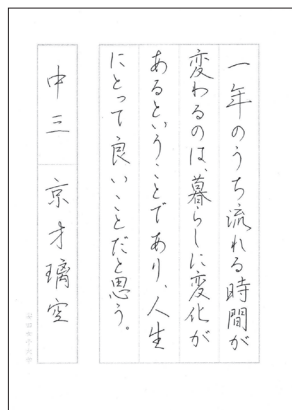 一年のうち流れる時間が
変わるのは、暮らしに変化が
あるということであり、人生
にとって良いことだと思う。
中三 京才璃空